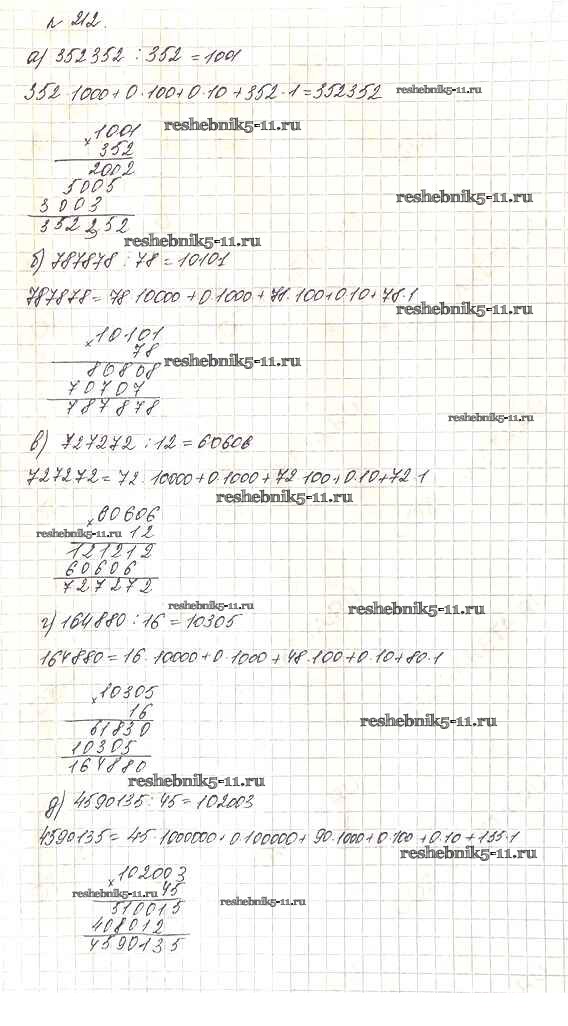 № 212.
а) 352352 : 352 = 1001
352 · 1000 + 0 · 100 + 0 · 10 + 352 · 1 = 352352 reshebnik5-11.ru
reshebnik5-11.ru
× 1001
352
2002
5005
reshebnik5-11.ru
3003
352352
reshebnik5-11.ru
б) 787878 : 78 = 10101
787878 = 78 · 10000 + 0 · 1000 + 78 · 100 + 0 · 10 + 78 · 1
reshebnik5-11.ru
× 10101
78
reshebnik5-11.ru
80808
70707
787878
reshebnik5-11.ru
в) 727272 : 12 = 60606
727272 = 72 · 10000 + 0 · 1000 + 72 · 100 + 0 · 10 + 72 · 1
reshebnik5-11.ru
× 60606
reshebnik5-11.ru 12
121212
60606
727272
reshebnik5-11.ru
reshebnik5-11.ru
г) 164880 : 16 = 10305
164880 = 16 · 10000 + 0 · 1000 + 48 · 100 + 0 · 10 + 80 · 1
× 10305
16
reshebnik5-11.ru
61830
10305
164880
reshebnik5-11.ru
д) 4590135 : 45 = 102003
4590135 = 45 · 1000000 + 0 · 100000 + 90 · 1000 + 0 · 100 + 0 · 10 + 135 · 1
reshebnik5-11.ru
× 102003
reshebnik5-11.ru 45
reshebnik5-11.ru
510015
408012
4590135